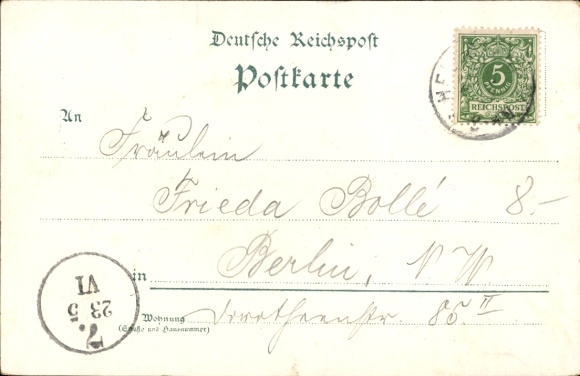 Deutsche Reichspost
Postkarte
5
PFENNIG
REICHSPOST
An
Fräulein
Frieda Bollé 8.-
in Berlin, NW
Wohnung Dorotheenstr. 85 II
(Straße und Hausnummer)
7.
23 5
VI